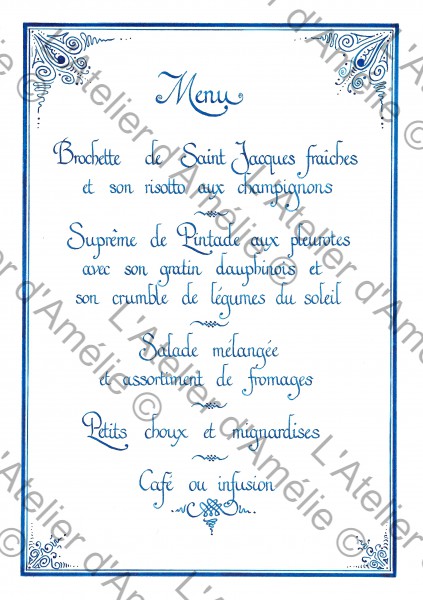 Menu
Brochette de Saint Jacques fraîches
et son risotto aux champignons
Suprême de Pintade aux pleurotes
avec son gratin dauphinois et
son crumble de légumes du soleil
Salade mélangée
et assortiment de fromages
Petits choux et mignardises
Café ou infusion
L'Atelier d'Amélie ©
L'Atelier d'Amélie ©
L'Atelier d'Amélie ©
L'Atelier d'Amélie ©
L'Atelier d'Amélie ©